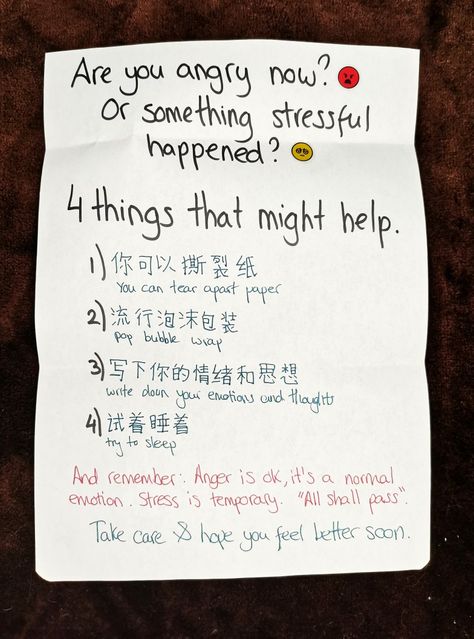 Are you angry now?
Or something stressful
happened?
4 things that might help.
1) 你可以撕裂纸
You can tear apart paper
2) 流行泡沫包装
pop bubble wrap
3) 写下你的情绪和思想
write down your emotions and thoughts
4) 试着睡着
try to sleep
And remember: Anger is ok, it's a normal
emotion. Stress is temporary. "All shall pass".
Take care & hope you feel better soon.